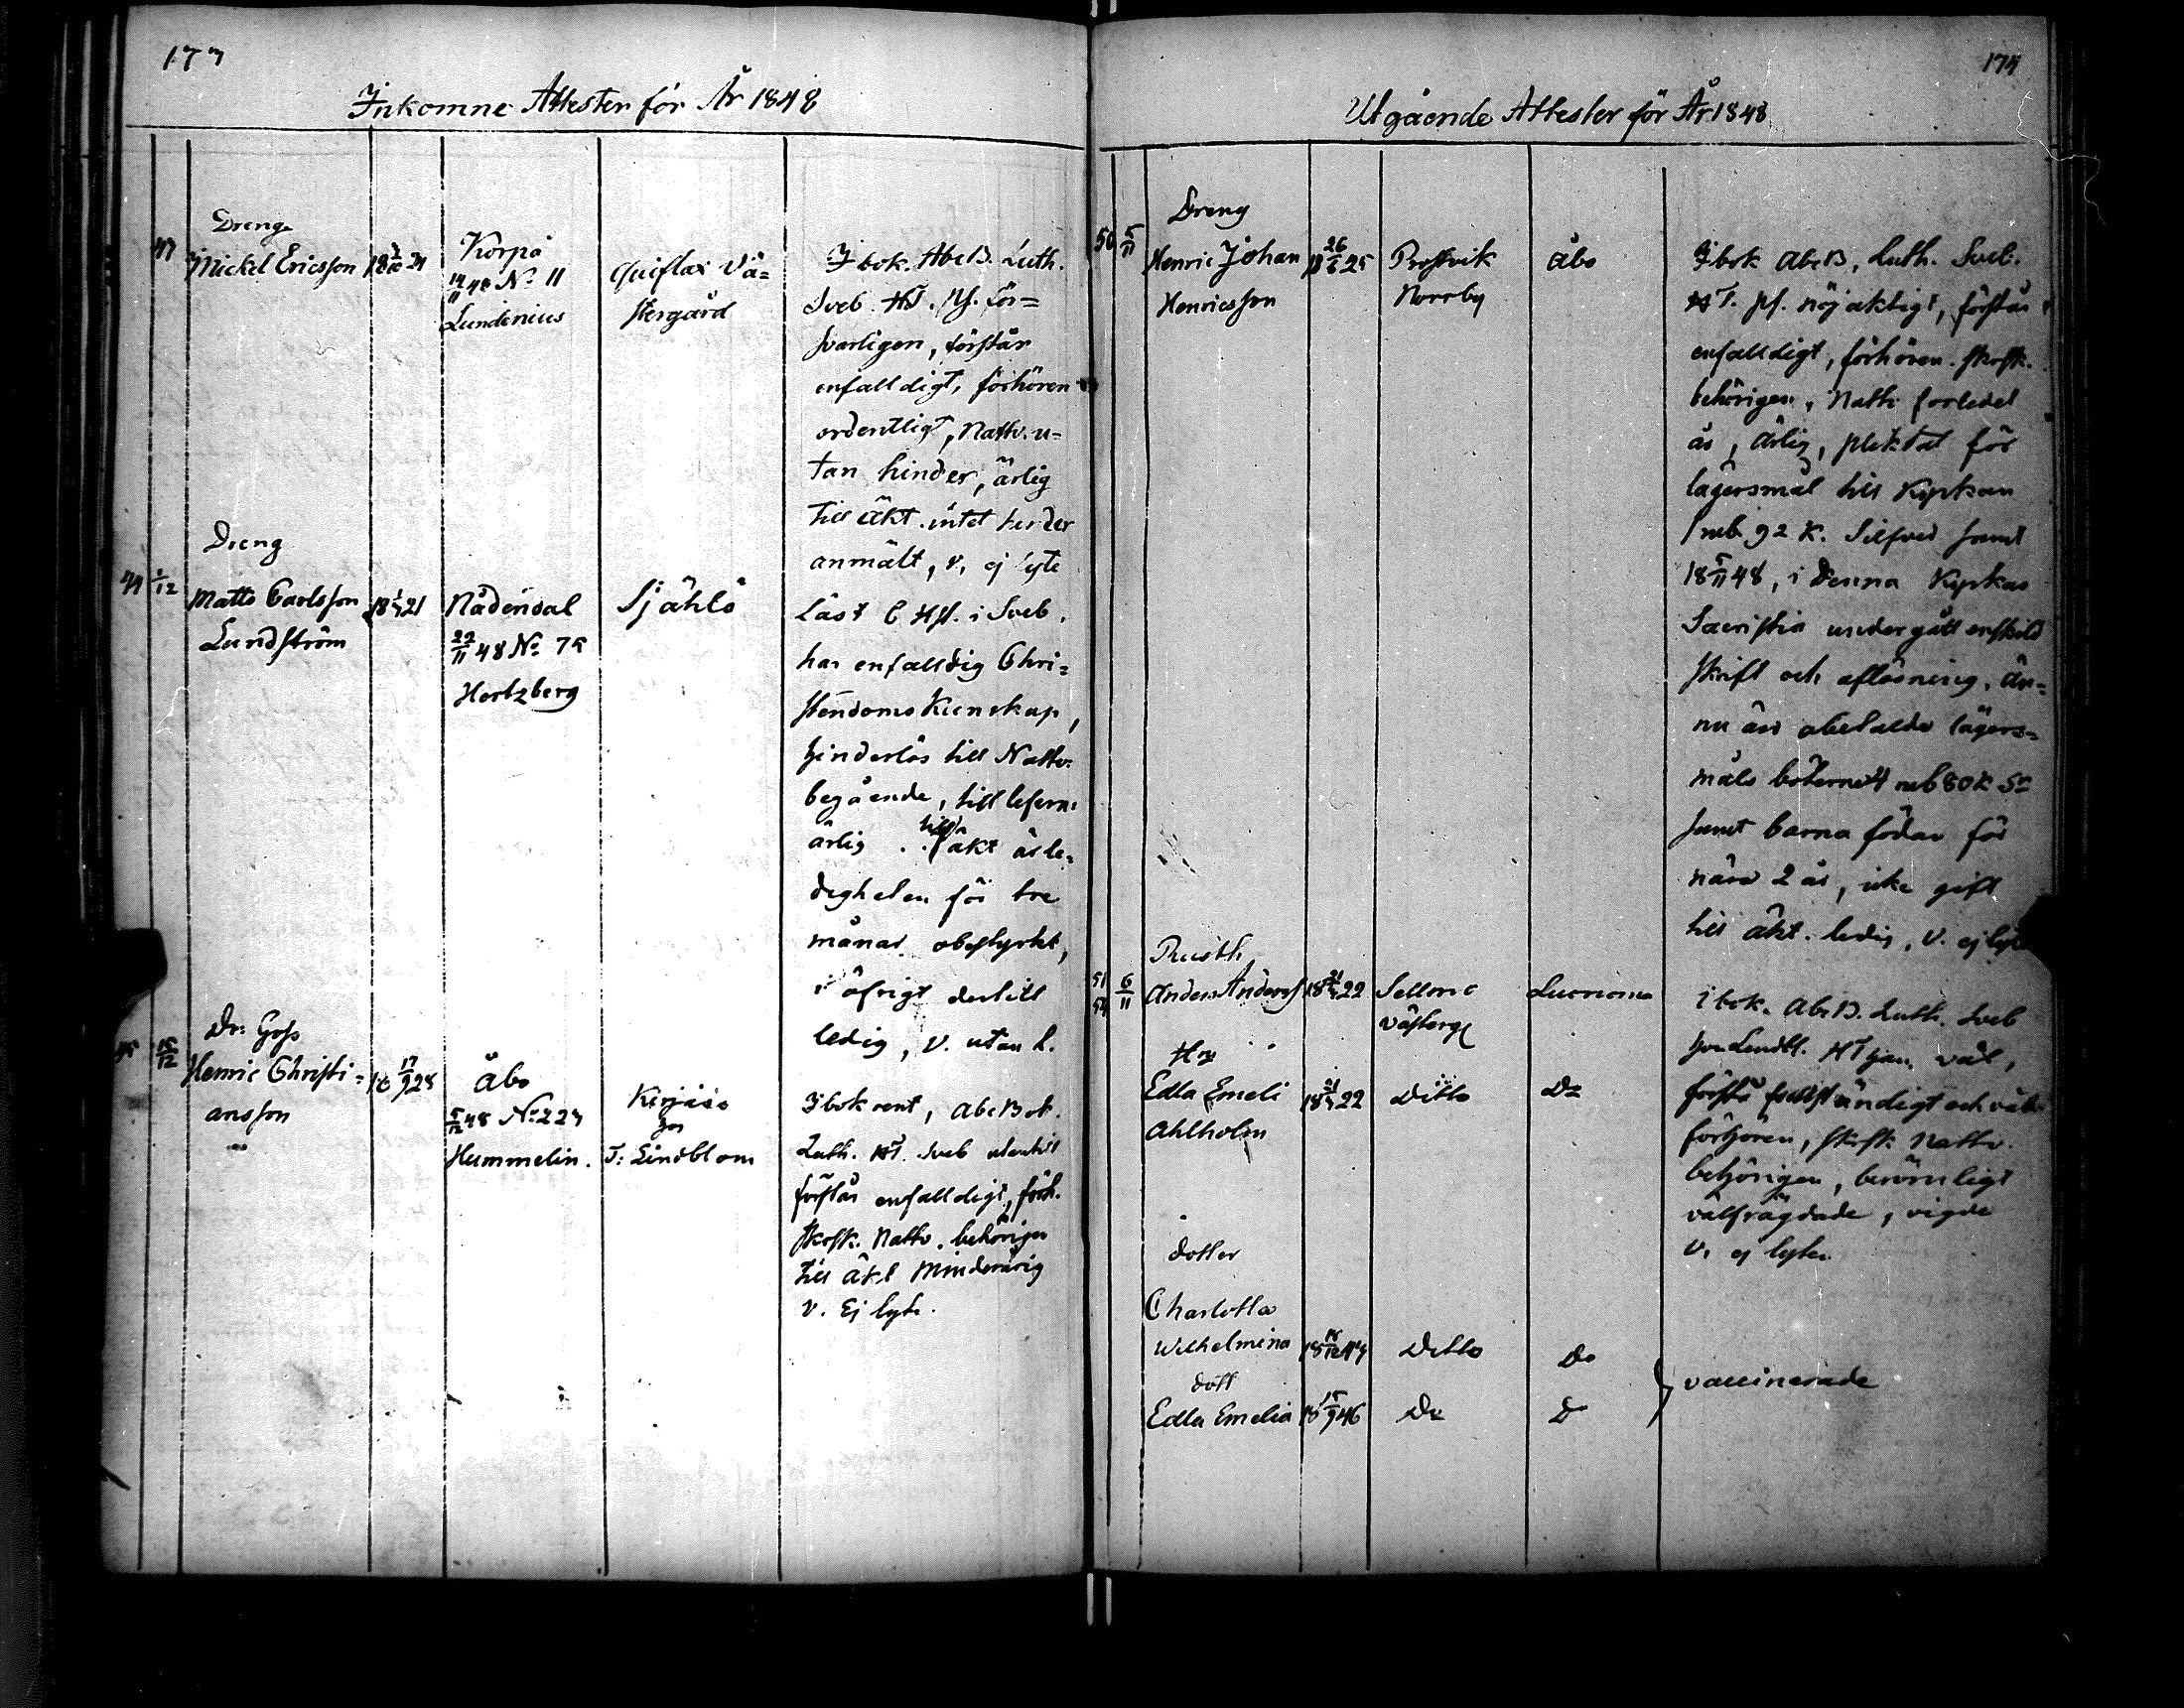 177
Inkomne Attester för År 1848
Dreng
47 Mickel Ericsson
Korpo
14/11 48 No 11
Lundenius
Quiflax Vä=
stergård
I bok. AbcB. Luth.
Sveb. HT. Ps. för=
svarligen, förstår
enfalldigt, förhören
ordentligt, Nattv. u=
tan hinder, ärlig
till äkt. intet hinder
anmält, v, ej lyte
Dreng
Matts Carlsson 18 21
Lundström
Nådendal
22/11 48 No 75
Hertzberg
Själlö
Läst C Hst. i Sveb.
har enfalldig Chri=
stendoms Kunskap,
hinderlös till Nattv.
begående, till lefern.
ärlig till äkt är le=
digheten för tre
månar obestyrkt,
i öfrigt dertill
ledig, V. utan l.
Dr: Goss
15/12 Henric Christi= 18 17/9 28
ansson
Åbo
5/12 48 No 223
Hummelin.
Kirjais
hos
T: Lindblom
I bok rent, AbcBok.
Luth. HT. Sveb utantill
förstår enfalldigt, förh.
skrft. Nattv. behörigen
till äkt minderårig
V. Ej lyte.
174
Utgående Attester för År 1848
Dreng
50 5/11 Henric Johan 18 26/6 25
Henricsson
Prostvik
Norrby
Åbo
I bok AbcB, Luth. Sveb.
HT. ps. nöjaktigt, förstår
enfalldigt, förhören. skrft.
behörigen, Nattv förledet
år, ärlig, pliktat för
lägersmål till Kyrkan
1 rub 92 K. Silfver samt
18 5/11 48, i denna Kyrkas
Sacristia undergått enskild
skrift och aflösning, än=
nu äro obetalde lägers=
måls böterne 4 rub 80 k Sr
samt barna födan för
nära 2 år, icke gift
till äkt. ledig, V. ej lyte
Rusth
51
54 6/11 Anders Anderss 18 22
Sellmo
Västerg
Luonoma
i bok. AbcB. Luth. Sveb
HT väl,
förstå fullständigt och väl
förhören, skrft. Nattv.
behörigen, berömligt
välfrägdade, vigde
V, ej lyte.
Hu
Edla Emeli 18 22 Ditto Do
Ahlholm
dotter
Charlotta
Wilhelmina 18 44 Ditto Do
dott
Edla Emelia 18 15/9 46 Do D
vaccinerade